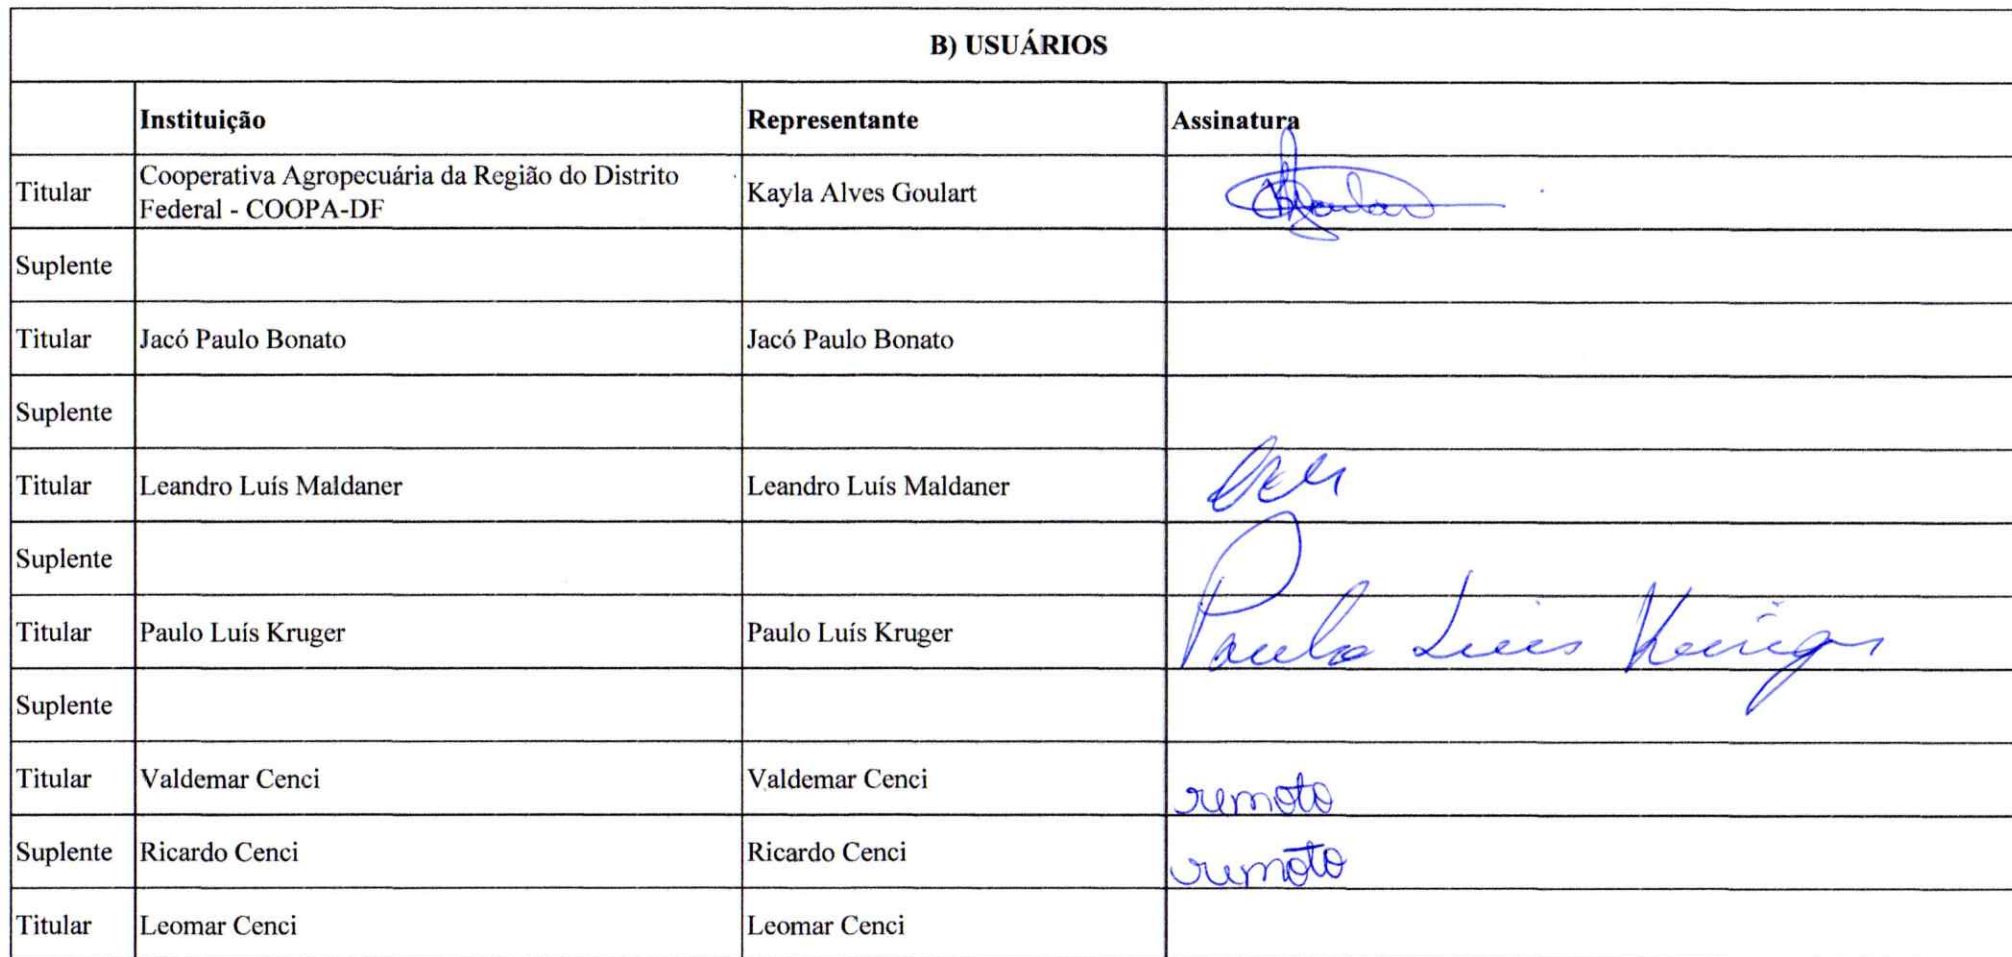 B) USUÁRIOS
Instituição Representante Assinatura
Titular Cooperativa Agropecuária da Região do Distrito Federal - COOPA-DF Kayla Alves Goulart
Suplente
Titular Jacó Paulo Bonato Jacó Paulo Bonato
Suplente
Titular Leandro Luís Maldaner Leandro Luís Maldaner
Suplente
Titular Paulo Luís Kruger Paulo Luís Kruger Paulo Luis Kruger
Suplente
Titular Valdemar Cenci Valdemar Cenci remoto
Suplente Ricardo Cenci Ricardo Cenci remoto
Titular Leomar Cenci Leomar Cenci